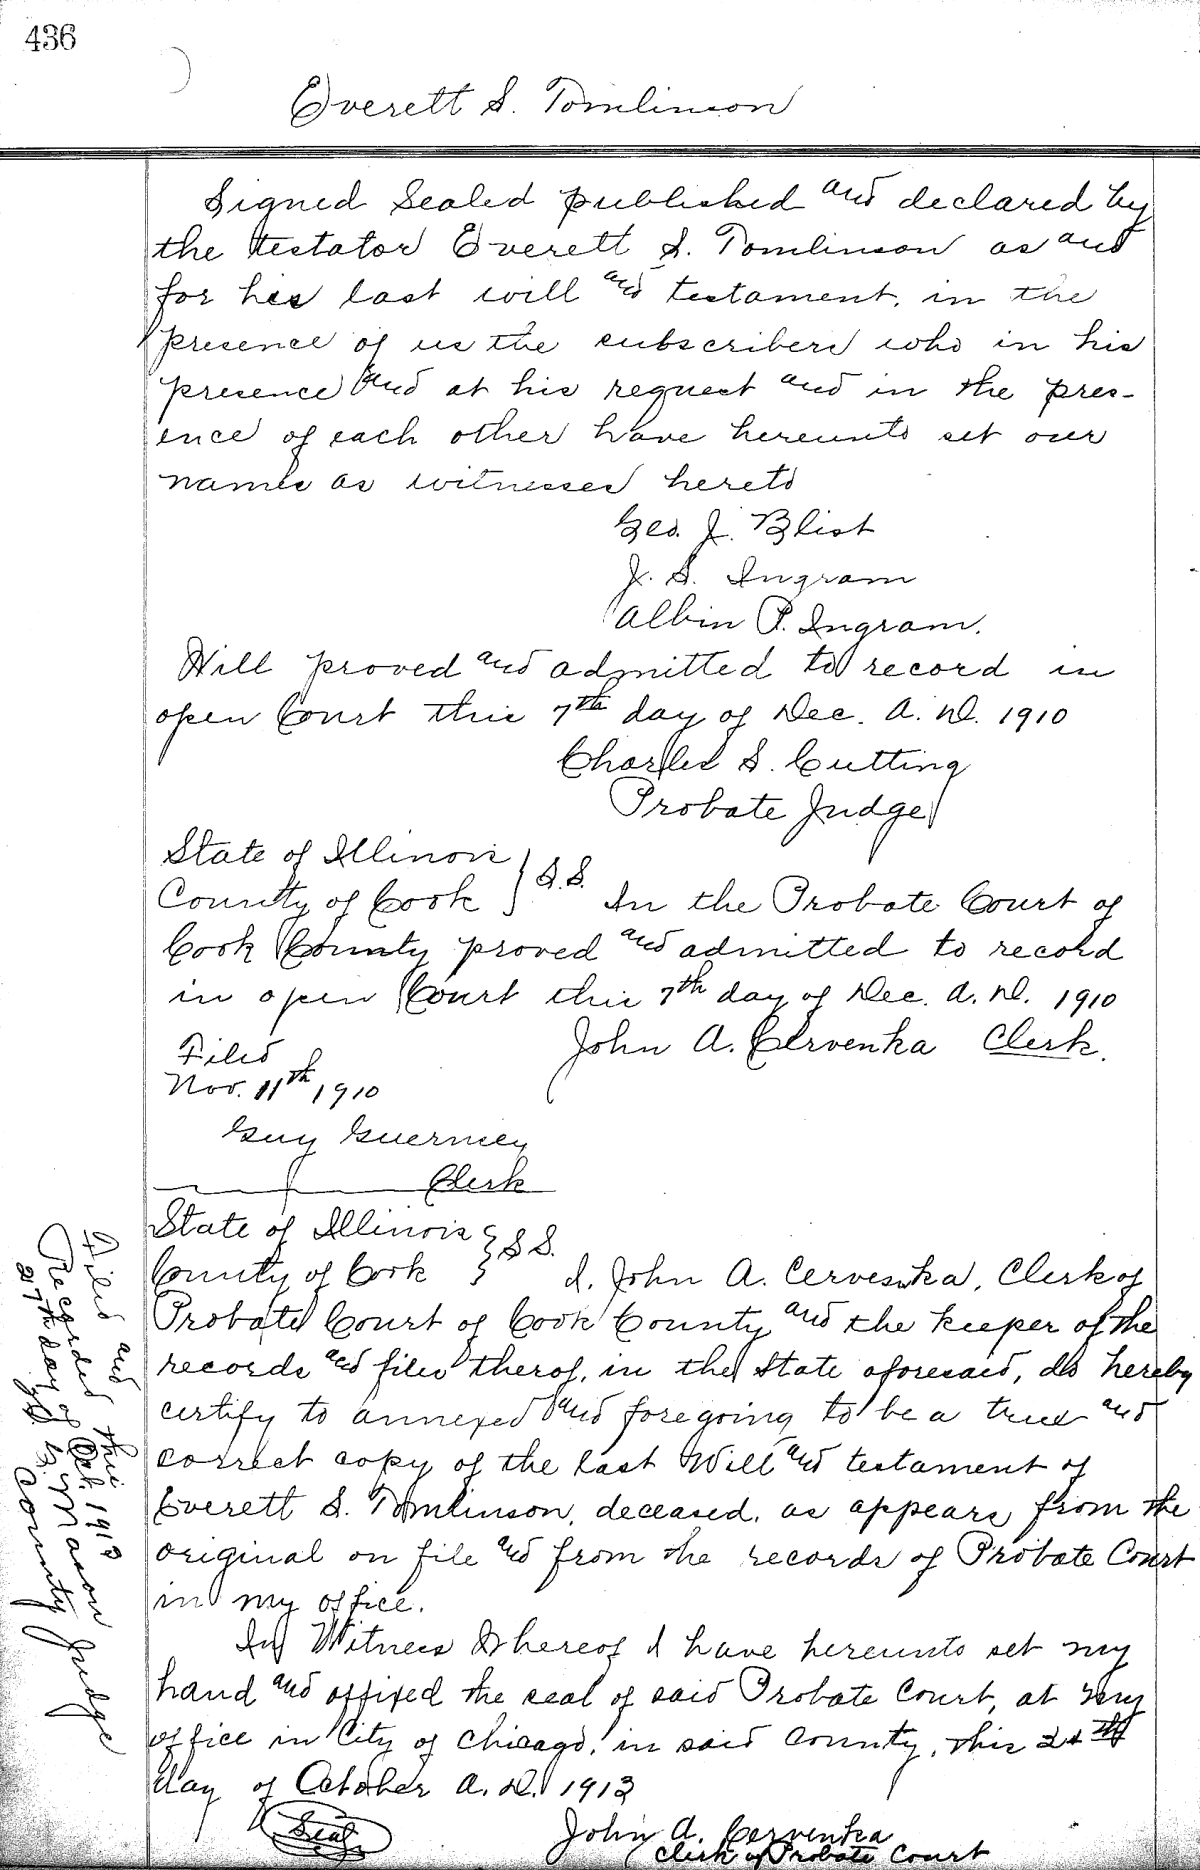 436
Everett S. Tomlinson
Signed Sealed published and declared by
the testator Everett S. Tomlinson as and
for his last will and testament, in the
presence of us the subscribers who in his
presence and at his request and in the pres-
ence of each other have hereunto set our
names as witnesses hereto
Geo. J. Blist
J. S. Ingram
Albin P. Ingram.
Will proved and admitted to record in
open Court this 7th day of Dec. A. D. 1910
Charles S. Cutting
Probate Judge
State of Illinois
County of Cook } S.S. In the Probate Court of
Cook County proved and admitted to record
in open Court this 7th day of Dec. A. D. 1910
John A. Cervenka Clerk.
Filed
Nov. 11th 1910
Guy Guernsey
Clerk
State of Illinois
County of Cook } S S. I, John A. Cervenka, Clerk of
Probate Court of Cook County and the keeper of the
records and files therof, in the State aforesaid, do hereby
certify to annexed and foregoing to be a true and
correct copy of the last Will and testament of
Everett S. Tomlinson, deceased, as appears from the
original on file and from the records of Probate Court
in my office.
In Witness Whereof I have hereunto set my
hand and affixed the seal of said Probate Court, at my
office in City of Chicago, in said County, this
day of October A. D. 1913
Seal
John A. Cervenka
Clerk of Probate Court
Filed and
Recorded this
27th day of Oct. 1913
Mason
County Judge